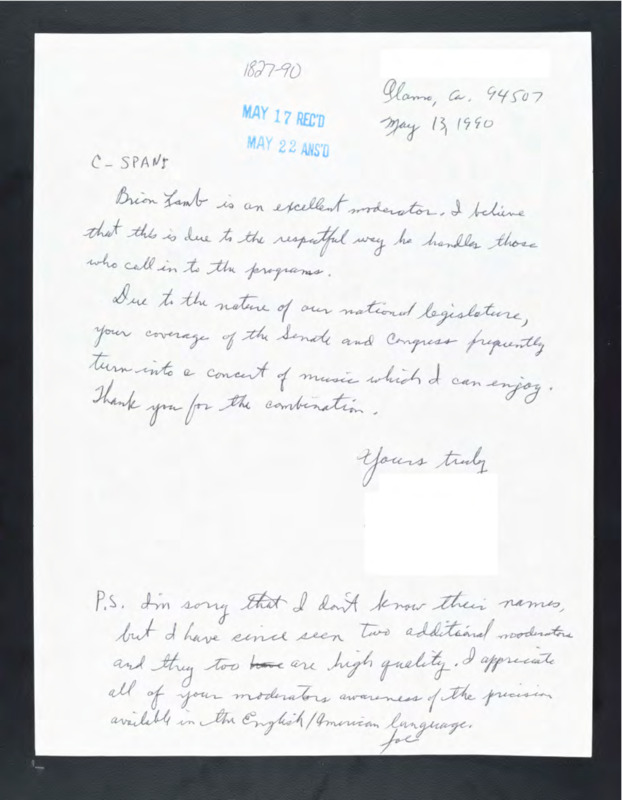 1827-90
Alamo, Ca. 94507
May 13, 1990
MAY 17 REC'D
MAY 22 ANS'D
C-SPAN:
Brian Lamb is an excellent moderator. I believe
that this is due to the respectful way he handles those
who call in to the programs.
Due to the nature of our national legislature,
your coverage of the Senate and Congress frequently
turn into a concert of music which I can enjoy.
Thank you for the combination.
Yours truly
P.S. I'm sorry that I don't know their names,
but I have since seen two additional moderators
and they too have are high quality. I appreciate
all of your moderators awareness of the precision
available in the English/American language.